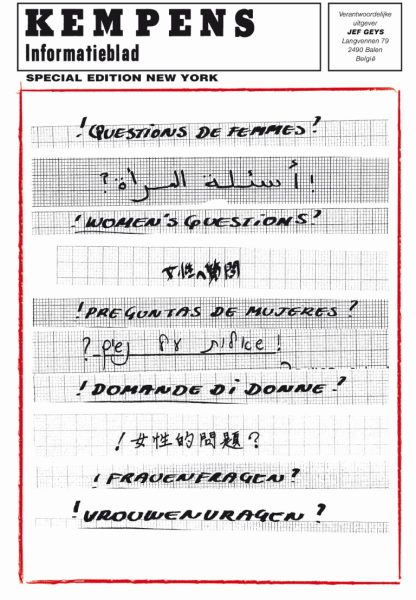 KEMPENS
Informatieblad
Verantwoordelijke
uitgever
JEF GEYS
Langvennen 79
2490 Balen
België
SPECIAL EDITION NEW YORK
! QUESTIONS DE FEMMES ?
! أسئلة المرأة ?
! WOMEN'S QUESTIONS ?
女性へ質問
! PREGUNTAS DE MUJERES ?
! שאלות של נשים ?
! DOMANDE DI DONNE ?
! 女性的問題 ?
! FRAUENFRAGEN ?
! VROUWENVRAGEN ?